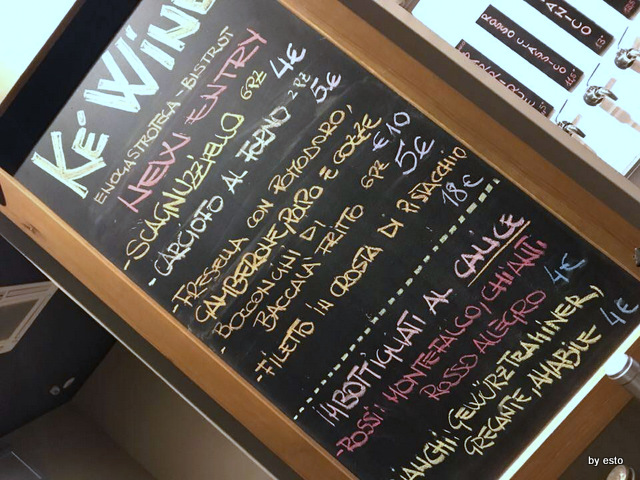 KE' WINE
ENOGASTROTECA - BISTROT
NEW ENTRY
- SCAGNUZZIELLO 6 PZ 4€
- CARCIOFO AL FORNO 2 PZ 5€
- FRESELLA CON POMODORO,
GAMBERONE, POLPO E COZZE €10
- BOCCONCINI DI
BACCALÀ FRITTO 6 PZ 5€
- FILETTO IN CROSTA DI PISTACCHIO
18€
IMBOTTIGLIATI AL CALICE
- ROSSI: MONTEFALCO, CHIANTI,
ROSSO ALLEGRO 4€
BIANCHI: GEWÜRZTRAMINER,
GRECANTE, AMABILE 4€
ROSSO CLASSICO
by esto